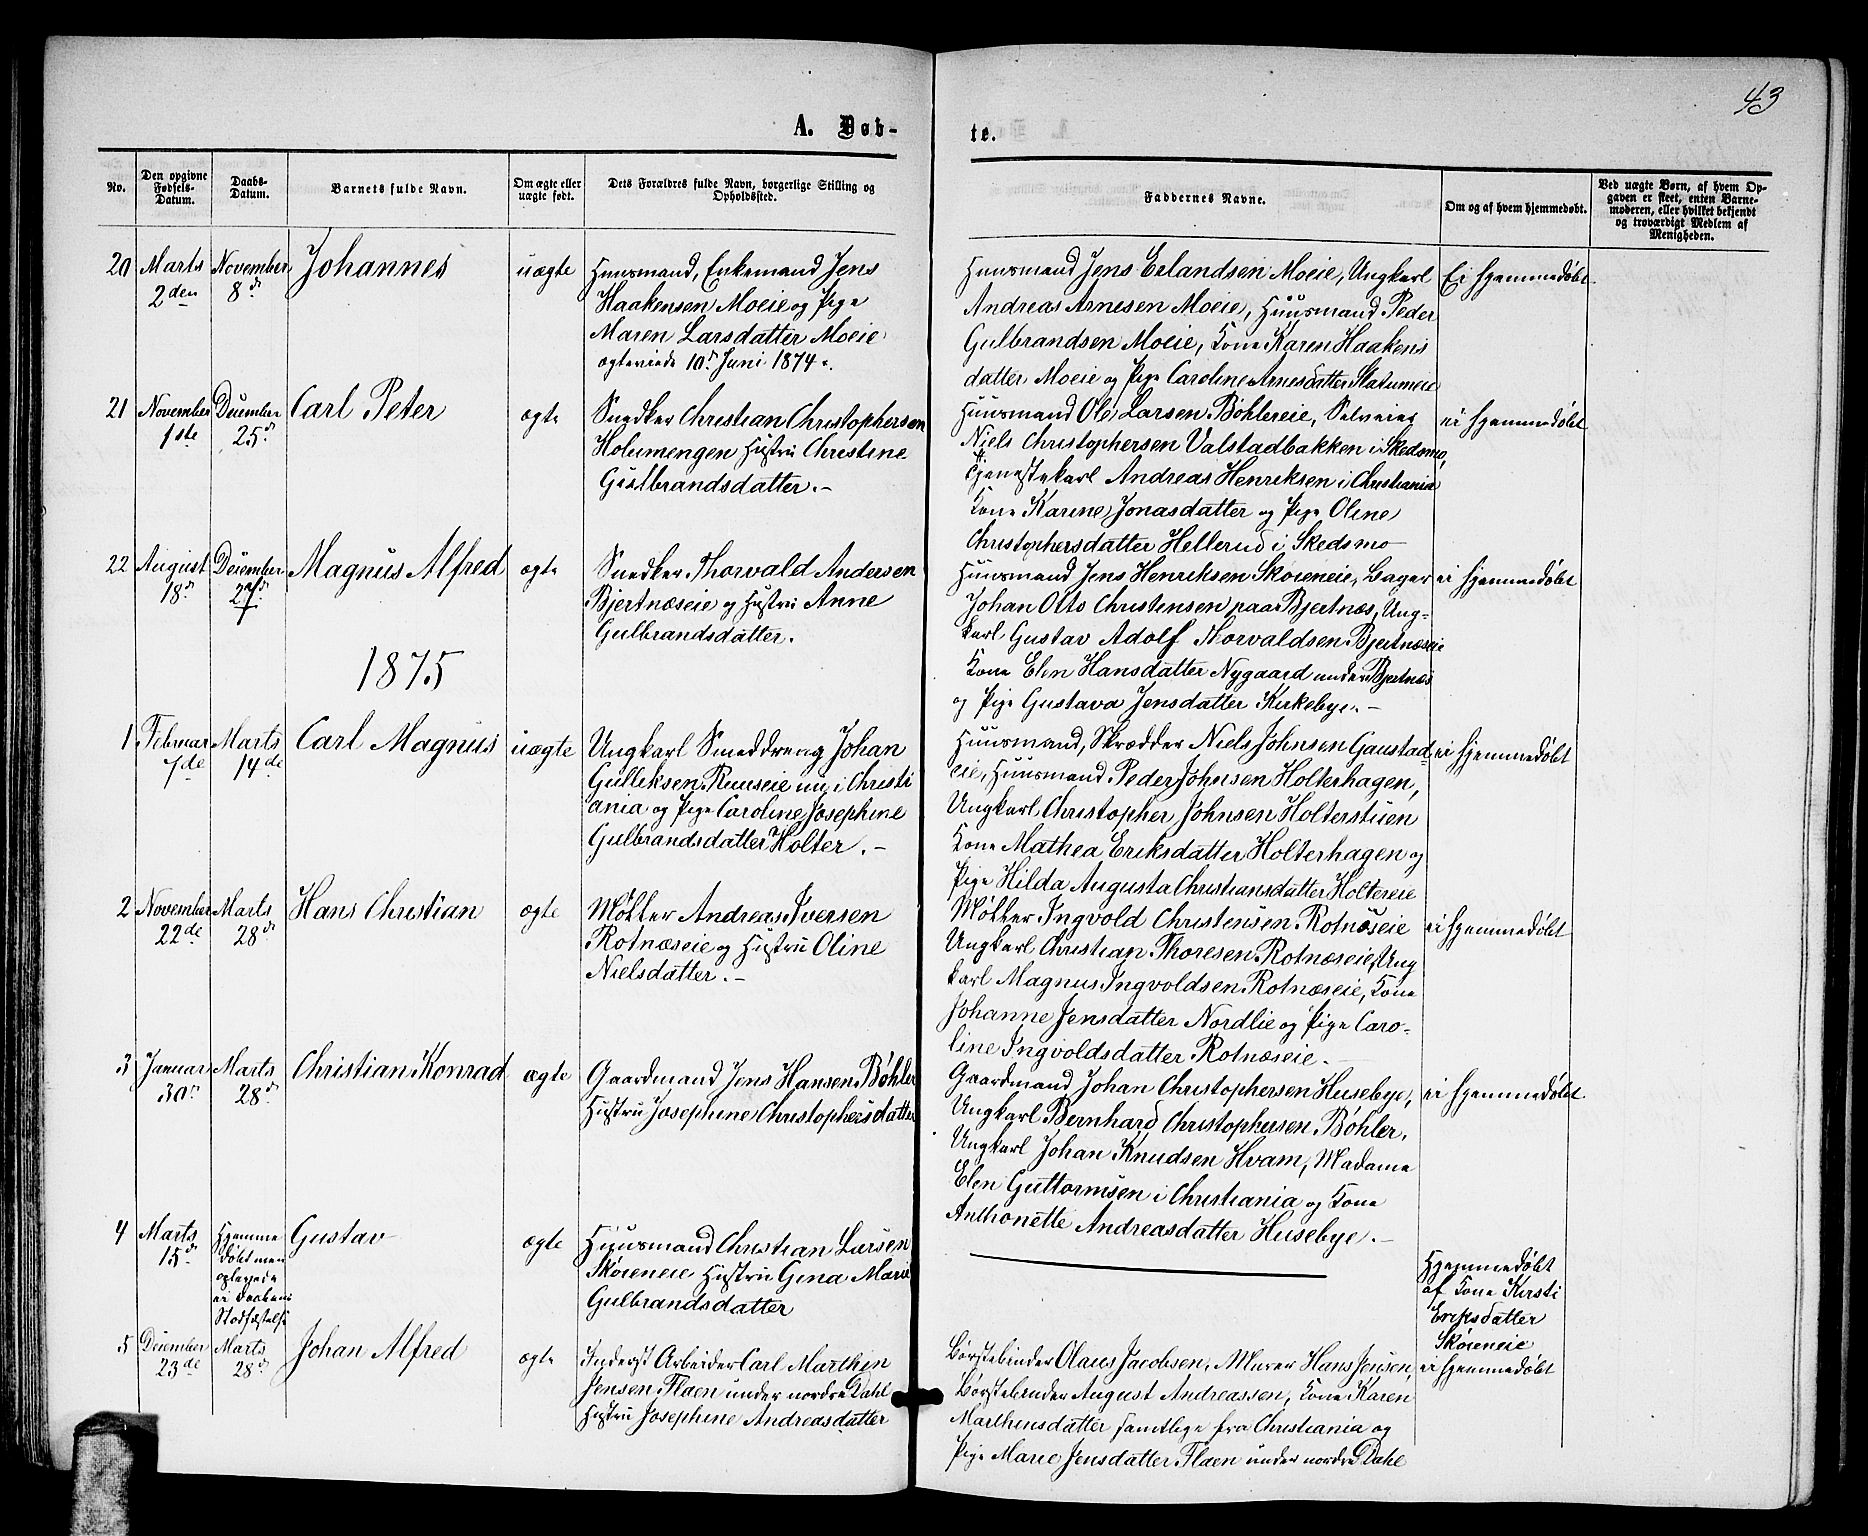 43
A. Døb-
te.
No.
Den opgivne Fødsels-Datum.
Daabs-Datum.
Barnets fulde Navn.
Om ægte eller uægte født.
Dets Forældres fulde Navn, borgerlige Stilling og Opholdssted.
Faddernes Navne.
Om og af hvem hjemmedøbt.
Ved uægte Børn, af hvem Op-
gaven er skeet, enten Barne-
moderen, eller hvilket bekjendt
og troværdigt Medlem af
Menigheden.
20 Marts November Johannes uægte Huusmand, Enkemand Jens
2den 8de Haakensen Moeie og Pige
Maren Larsdatter Moeie
ægteviede 10de Juni 1874.
Huusmand Jens Erlandsen Moeie, Ungkarl Ei hjemmedøbt.
Andreas Arnesen Moeie, Huusmand Peder
Gulbrandsen Moeie, Kone Karen Haakens
datter Moeie og Pige Caroline Arnesdatter Statumeie
21 November December Carl Peter ægte Snedker Christian Christophersen
1ste 25de Holumengen Hustru Christine
Gulbrandsdatter.-
Huusmand Ole Larsen Bøhlereie, Selveier ei hjemmedøbt
Niels Christophersen Valstadbakken i Skedsmo,
Tjenestekarl Andreas Henriksen i Christiania
Kone Karine Jonasdatter og Pige Oline
Christophersdatter Hellerud i Skedsmo
22 August December Magnus Alfred ægte Snedker Thorvald Andersen
18de 27de Bjertnæseie og Hustru Anne
Gulbrandsdatter.
Huusmand Jens Henriksen Skøieneie, Bager ei hjemmedøbt
Johan Otto Christensen paa Bjertnæs, Ung-
karl Gustav Adolf Thorvaldsen Bjertnæseie
Kone Elen Hansdatter Nygaard under Bjertnæs
og Pige Gustava Jensdatter Kirkebye.-
1875
1 Februar Marts Carl Magnus uægte Ungkarl Smeddreng Johan
7de 14de Gulleksen Ruuseie nu i Christi
ania og Pige Caroline Josephine
Gulbrandsdatter Holter.-
Huusmand, Skrædder Niels Johnsen Gaustad- ei hjemmedøbt
eie, Huusmand Peder Johnsen Holterhagen,
Ungkarl Christopher Johnsen Holterstuen
Kone Mathea Eriksdatter Holterhagen og
Pige Hilda Augusta Christiansdatter Holtereie
2 November Marts Hans Christian ægte Møller Andreas Iversen
22de 28de Rotnæseie og Hustru Oline
Nielsdatter.-
Møller Ingvold Christensen Rotnæseie ei hjemmedøbt
Ungkarl Christian Thoresen Rotnæseie, Ung
karl Magnus Ingvoldsen Rotnæseie, Kone
Johanne Jensdatter Nordlie og Pige Caro-
line Ingvoldsdatter Rotnæseie.-
3 Januar Marts Christian Konrad ægte Gaardmand Jens Hansen Bøhler
30de 28de Hustru Josephine Christophersdatter
Gaardmand Johan Christophersen Husebye, ei hjemmedøbt.
Ungkarl Bernhard Christophersen Bøhler,
Ungkarl Johan Knudsen Hvam, Madame
Elen Guttormsen i Christiania og Kone
Anthonette Andreasdatter Husebye.-
4 Marts Hjemme Gustav ægte Huusmand Christian Larsen
15de døbt men Skøieneie Hustru Gina Marie
oplevede Gulbrandsdatter
ei Daabens
Stadfæstelse
Hjemmedøbt
af Kone Kirsti
Eriksdatter
Skøieneie
5 December Marts Johan Alfred ægte Inderst Arbeider Carl Marthin
23de 28de Jensen Flaen under nordre Dahl
Hustru Josephine Andreasdatter
Børstebinder Olaus Jacobsen, Murer Hans Jensen, ei hjemmedøbt
Børstebinder August Andreassen, Kone Karen
Marthinsdatter samtlige fra Christiania og
Pige Marie Jensdatter Flaen under nordre Dahl